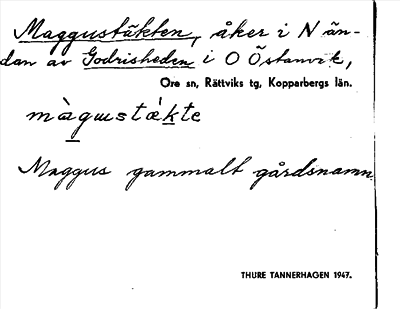 Maggustäkten, åker i N än-
dan av Godrisheden i O Östanvik,
Ore sn, Rättviks tg, Kopparbergs län.
màgustǽkte
Maggus gammalt gårdsnamn.
THURE TANNERHAGEN 1947.